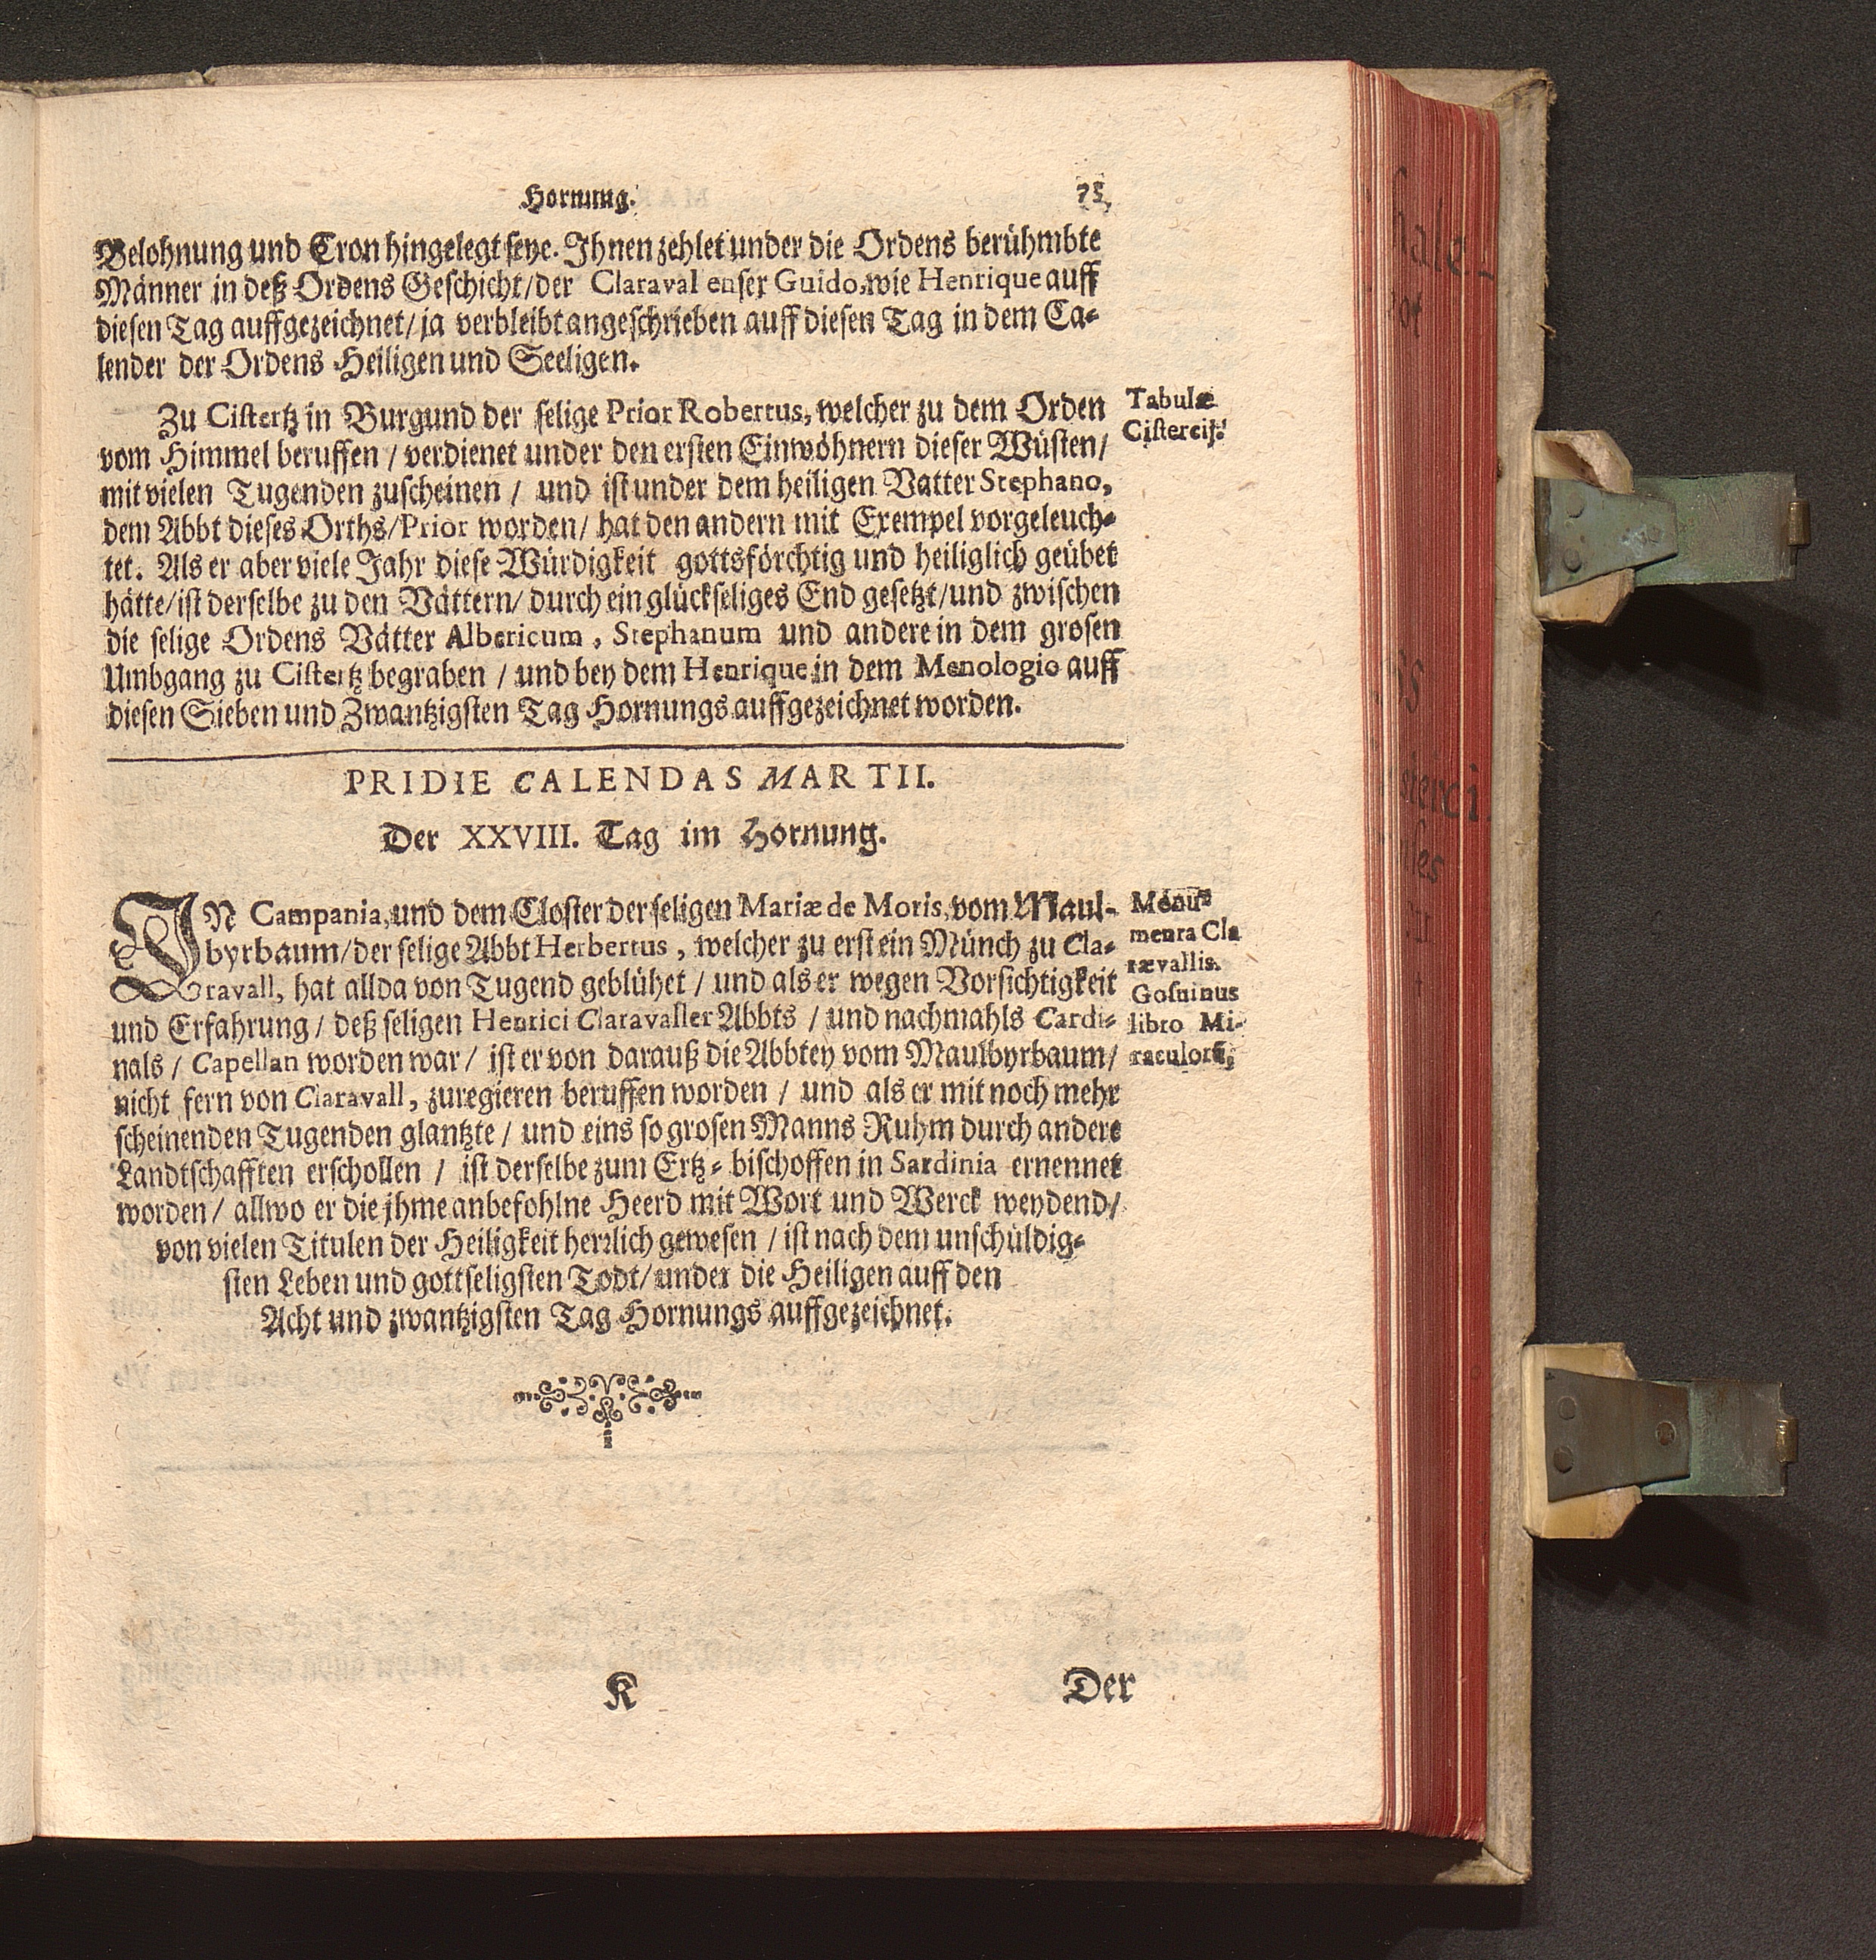 Hornung. 75
Belohnung und Cron hingelegt seye. Ihnen zehlet under die Ordens berühmbte
Männer in deß Ordens Geschicht/der Claraval enser Guido, wie Henrique auff
diesen Tag auffgezeichnet/ ja verbleibt angeschrieben auff diesen Tag in dem Ca-
lender der Ordens Heiligen und Seeligen.
Zu Cistertz in Burgund der selige Prior Robertus, welcher zu dem Orden
vom Himmel beruffen / verdienet under den ersten Einwöhnern dieser Wüsten/
mit vielen Tugenden zuscheinen / und ist under dem heiligen Vatter Stephano,
dem Abbt dieses Orths/Prior worden/ hat den andern mit Exempel vorgeleuch-
tet. Als er aber viele Jahr diese Würdigkeit gottsförchtig und heiliglich geübet
hätte/ist derselbe zu den Vättern/ durch ein glückseliges End gesetzt/und zwischen
die selige Ordens Vätter Albericum, Stephanum und andere in dem grosen
Umbgang zu Cistertz begraben / und bey dem Henrique in dem Menologio auff
diesen Sieben und Zwantzigsten Tag Hornungs auffgezeichnet worden.
Tabulæ
Cistercij.
PRIDIE CALENDAS MARTII.
Der XXVIII. Tag im Hornung.
IN Campania, und dem Closter der seligen Mariæ de Moris, vom Maul-
byrbaum/der selige Abbt Herbertus, welcher zu erst ein Münch zu Cla-
ravall, hat allda von Tugend geblühet / und als er wegen Vorsichtigkeit
und Erfahrung / deß seligen Henrici Claravaller Abbts / und nachmahls Cardi-
nals / Capellan worden war / ist er von darauß die Abbtey vom Maulbyrbaum/
nicht fern von Claravall, zuregieren beruffen worden / und als er mit noch mehr
scheinenden Tugenden glantzte / und eins so grosen Manns Ruhm durch andere
Landtschafften erschollen / ist derselbe zum Ertz-bischoffen in Sardinia ernennet
worden / allwo er die jhme anbefohlne Heerd mit Wort und Werck weydend/
von vielen Titulen der Heiligkeit herrlich gewesen / ist nach dem unschuldig-
sten Leben und gottseligsten Todt/ under die Heiligen auff den
Acht und zwantzigsten Tag Hornungs auffgezeichnet.
Monu-
menta Cla
rævallis.
Gosuinus
libro Mi-
raculorũ,
K Der